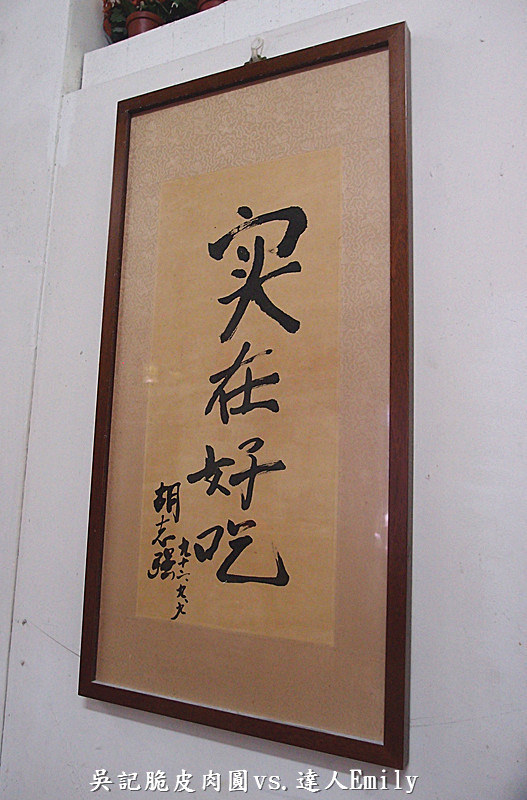 实在好吃
胡志强
九十六.九.九
吳記脆皮肉圓vs.達人Emily